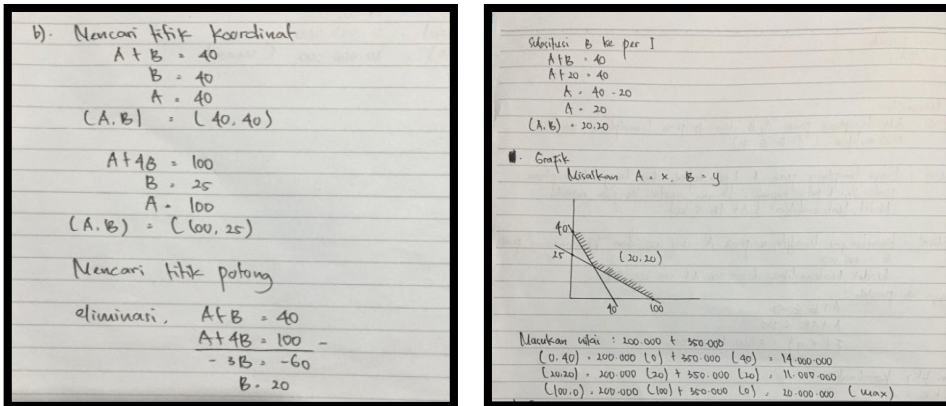 b). Mencari titik koordinat
A + B = 40
B = 40
A = 40
(A.B) = (40, 40)
A + 4B = 100
B = 25
A = 100
(A.B) = (100, 25)
Mencari titik potong
eliminasi, A + B = 40
A + 4B = 100 -
- 3B = -60
B = 20
Subsitusi B ke per I
A + B = 40
A + 20 = 40
A = 40 - 20
A = 20
(A.B) = 20.20
Grafik
Misalkan A = x, B = y
40
25
(20.20)
40
100
Masukan nilai : 200.000 + 350.000
(0.40) = 200.000 (0) + 350.000 (40) = 14.000.000
(20.20) = 200.000 (20) + 350.000 (20) = 11.000.000
(100.0) = 200.000 (100) + 350.000 (0) = 20.000.000 (max)